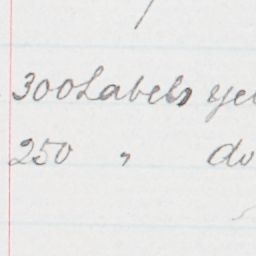 300 Labels ye
250 " do